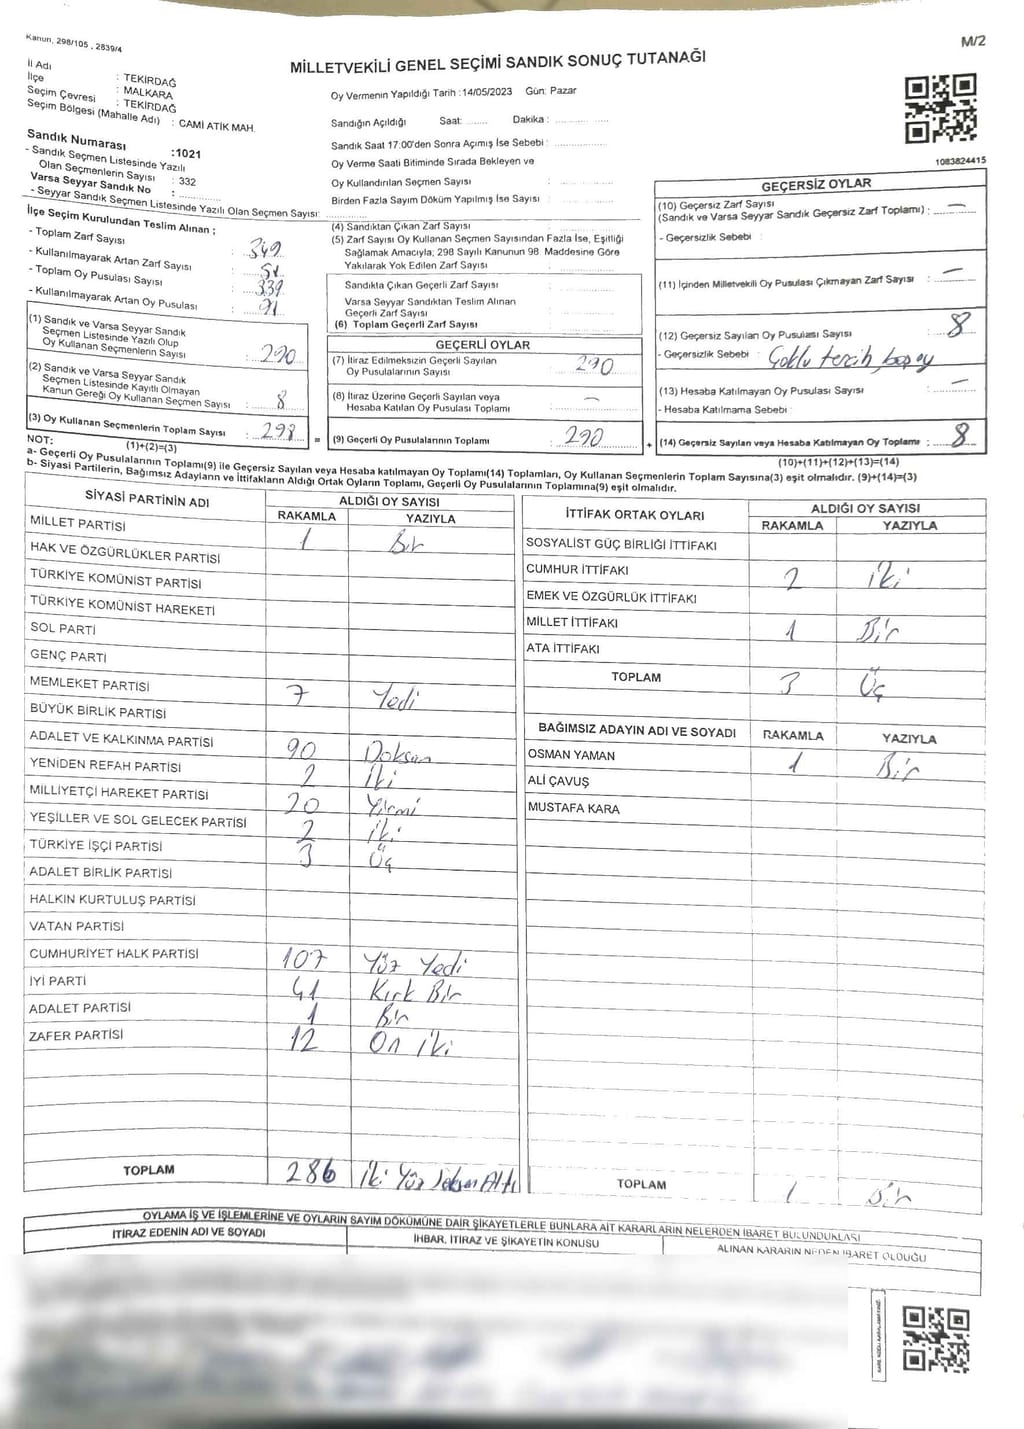 Kanun, 298/105 , 2839/4
M/2
MİLLETVEKİLİ GENEL SEÇİMİ SANDIK SONUÇ TUTANAĞI
İl Adı : TEKİRDAĞ
İlçe : MALKARA
Seçim Çevresi : TEKİRDAĞ
Seçim Bölgesi (Mahalle Adı) : CAMİ ATİK MAH.
Sandık Numarası :1021
- Sandık Seçmen Listesinde Yazılı
Olan Seçmenlerin Sayısı : 332
Varsa Seyyar Sandık No :
- Seyyar Sandık Seçmen Listesinde Yazılı Olan Seçmen Sayısı:
Oy Vermenin Yapıldığı Tarih :14/05/2023 Gün: Pazar
Sandığın Açıldığı Saat: Dakika :
Sandık Saat 17:00'den Sonra Açımış İse Sebebi :
Oy Verme Saati Bitiminde Sırada Bekleyen ve
Oy Kullandırılan Seçmen Sayısı :
Birden Fazla Sayım Döküm Yapılmış İse Sayısı :
1083824415
İlçe Seçim Kurulundan Teslim Alınan ;
- Toplam Zarf Sayısı : 349
- Kullanılmayarak Artan Zarf Sayısı : 51
- Toplam Oy Pusulası Sayısı : 339
- Kullanılmayarak Artan Oy Pusulası :
(1) Sandık ve Varsa Seyyar Sandık
Seçmen Listesinde Yazılı Olup
Oy Kullanan Seçmenlerin Sayısı : 290
(2) Sandık ve Varsa Seyyar Sandık
Seçmen Listesinde Kayıtlı Olmayan
Kanun Gereği Oy Kullanan Seçmen Sayısı : 8
(3) Oy Kullanan Seçmenlerin Toplam Sayısı : 298
(1)+(2)=(3)
(4) Sandıktan Çıkan Zarf Sayısı :
(5) Zarf Sayısı Oy Kullanan Seçmen Sayısından Fazla İse, Eşitliği
Sağlamak Amacıyla; 298 Sayılı Kanunun 98. Maddesine Göre
Yakılarak Yok Edilen Zarf Sayısı :
Sandıkta Çıkan Geçerli Zarf Sayısı :
Varsa Seyyar Sandıktan Teslim Alınan
Geçerli Zarf Sayısı :
(6) Toplam Geçerli Zarf Sayısı :
GEÇERLİ OYLAR
(7) İtiraz Edilmeksizin Geçerli Sayılan
Oy Pusulalarının Sayısı : 290
(8) İtiraz Üzerine Geçerli Sayılan veya
Hesaba Katılan Oy Pusulası Toplamı : –
= (9) Geçerli Oy Pusulalarının Toplamı : 290
GEÇERSİZ OYLAR
(10) Geçersiz Zarf Sayısı
(Sandık ve Varsa Seyyar Sandık Geçersiz Zarf Toplamı) : –
- Geçersizlik Sebebi :
(11) İçinden Milletvekili Oy Pusulası Çıkmayan Zarf Sayısı : –
(12) Geçersiz Sayılan Oy Pusulası Sayısı : 8
- Geçersizlik Sebebi : Çoklu tercih, boş oy
(13) Hesaba Katılmayan Oy Pusulası Sayısı : –
- Hesaba Katılmama Sebebi :
+ (14) Geçersiz Sayılan veya Hesaba Katılmayan Oy Toplamı : 8
(10)+(11)+(12)+(13)=(14)
NOT:
a- Geçerli Oy Pusulalarının Toplamı(9) ile Geçersiz Sayılan veya Hesaba katılmayan Oy Toplamı(14) Toplamları, Oy Kullanan Seçmenlerin Toplam Sayısına(3) eşit olmalıdır. (9)+(14)=(3)
b- Siyasi Partilerin, Bağımsız Adayların ve İttifakların Aldığı Ortak Oyların Toplamı, Geçerli Oy Pusulalarının Toplamına(9) eşit olmalıdır.
SİYASİ PARTİNİN ADI ALDIĞI OY SAYISI
RAKAMLA YAZIYLA
MİLLET PARTİSİ 1 Bir
HAK VE ÖZGÜRLÜKLER PARTİSİ
TÜRKİYE KOMÜNİST PARTİSİ
TÜRKİYE KOMÜNİST HAREKETİ
SOL PARTİ
GENÇ PARTİ
MEMLEKET PARTİSİ 7 Yedi
BÜYÜK BİRLİK PARTİSİ
ADALET VE KALKINMA PARTİSİ 90 Doksan
YENİDEN REFAH PARTİSİ 2 İki
MİLLİYETÇİ HAREKET PARTİSİ 20 Yirmi
YEŞİLLER VE SOL GELECEK PARTİSİ 2 İki
TÜRKİYE İŞÇİ PARTİSİ 3 Üç
ADALET BİRLİK PARTİSİ
HALKIN KURTULUŞ PARTİSİ
VATAN PARTİSİ
CUMHURİYET HALK PARTİSİ 107 Yüz Yedi
İYİ PARTİ 41 Kırk Bir
ADALET PARTİSİ 1 Bir
ZAFER PARTİSİ 12 On iki
TOPLAM 286 İki Yüz Seksen Altı
İTTİFAK ORTAK OYLARI ALDIĞI OY SAYISI
RAKAMLA YAZIYLA
SOSYALİST GÜÇ BİRLİĞİ İTTİFAKI
CUMHUR İTTİFAKI 2 iki
EMEK VE ÖZGÜRLÜK İTTİFAKI
MİLLET İTTİFAKI 1 Bir
ATA İTTİFAKI
TOPLAM 3 Üç
BAĞIMSIZ ADAYIN ADI VE SOYADI RAKAMLA YAZIYLA
OSMAN YAMAN 1 Bir
ALİ ÇAVUŞ
MUSTAFA KARA
TOPLAM 1 Bir
OYLAMA İŞ VE İŞLEMLERİNE VE OYLARIN SAYIM DÖKÜMÜNE DAİR ŞİKAYETLERLE BUNLARA AİT KARARLARIN NELERDEN İBARET BULUNDUKLASI
İTİRAZ EDENİN ADI VE SOYADI İHBAR, İTİRAZ VE ŞİKAYETİN KONUSU ALINAN KARARIN NEDEN İBARET OLDUĞU